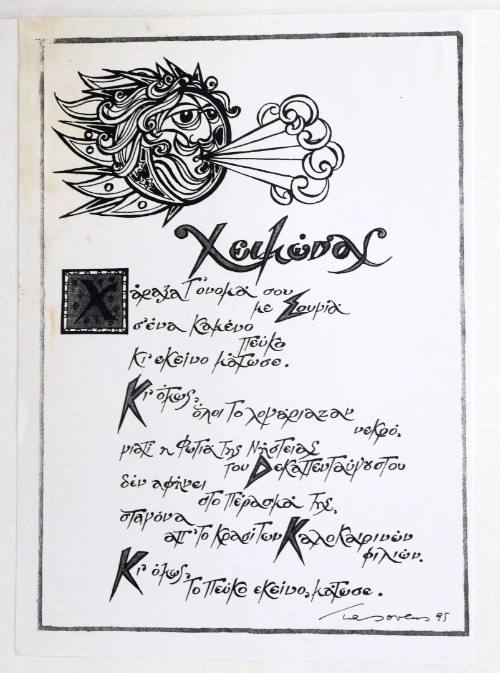 Χειμώνας
Χάραξα τ' όνομά σου
με Σουγιά
σ' ένα καμένο
πεύκο
κι' εκείνο μάτωσε.
Κι' όμως,
όλοι το λογάριαζαν
νεκρό,
γιατί η Φωτιά της Νήστειας
του Δεκαπενταύγουστου
δέν αφήνει
στο πέρασμά της,
σταγόνα
απ' το κρασί των Καλοκαιρινών
φιλιών.
Κι' όμως,
το πεύκο εκείνο, μάτωσε.
95